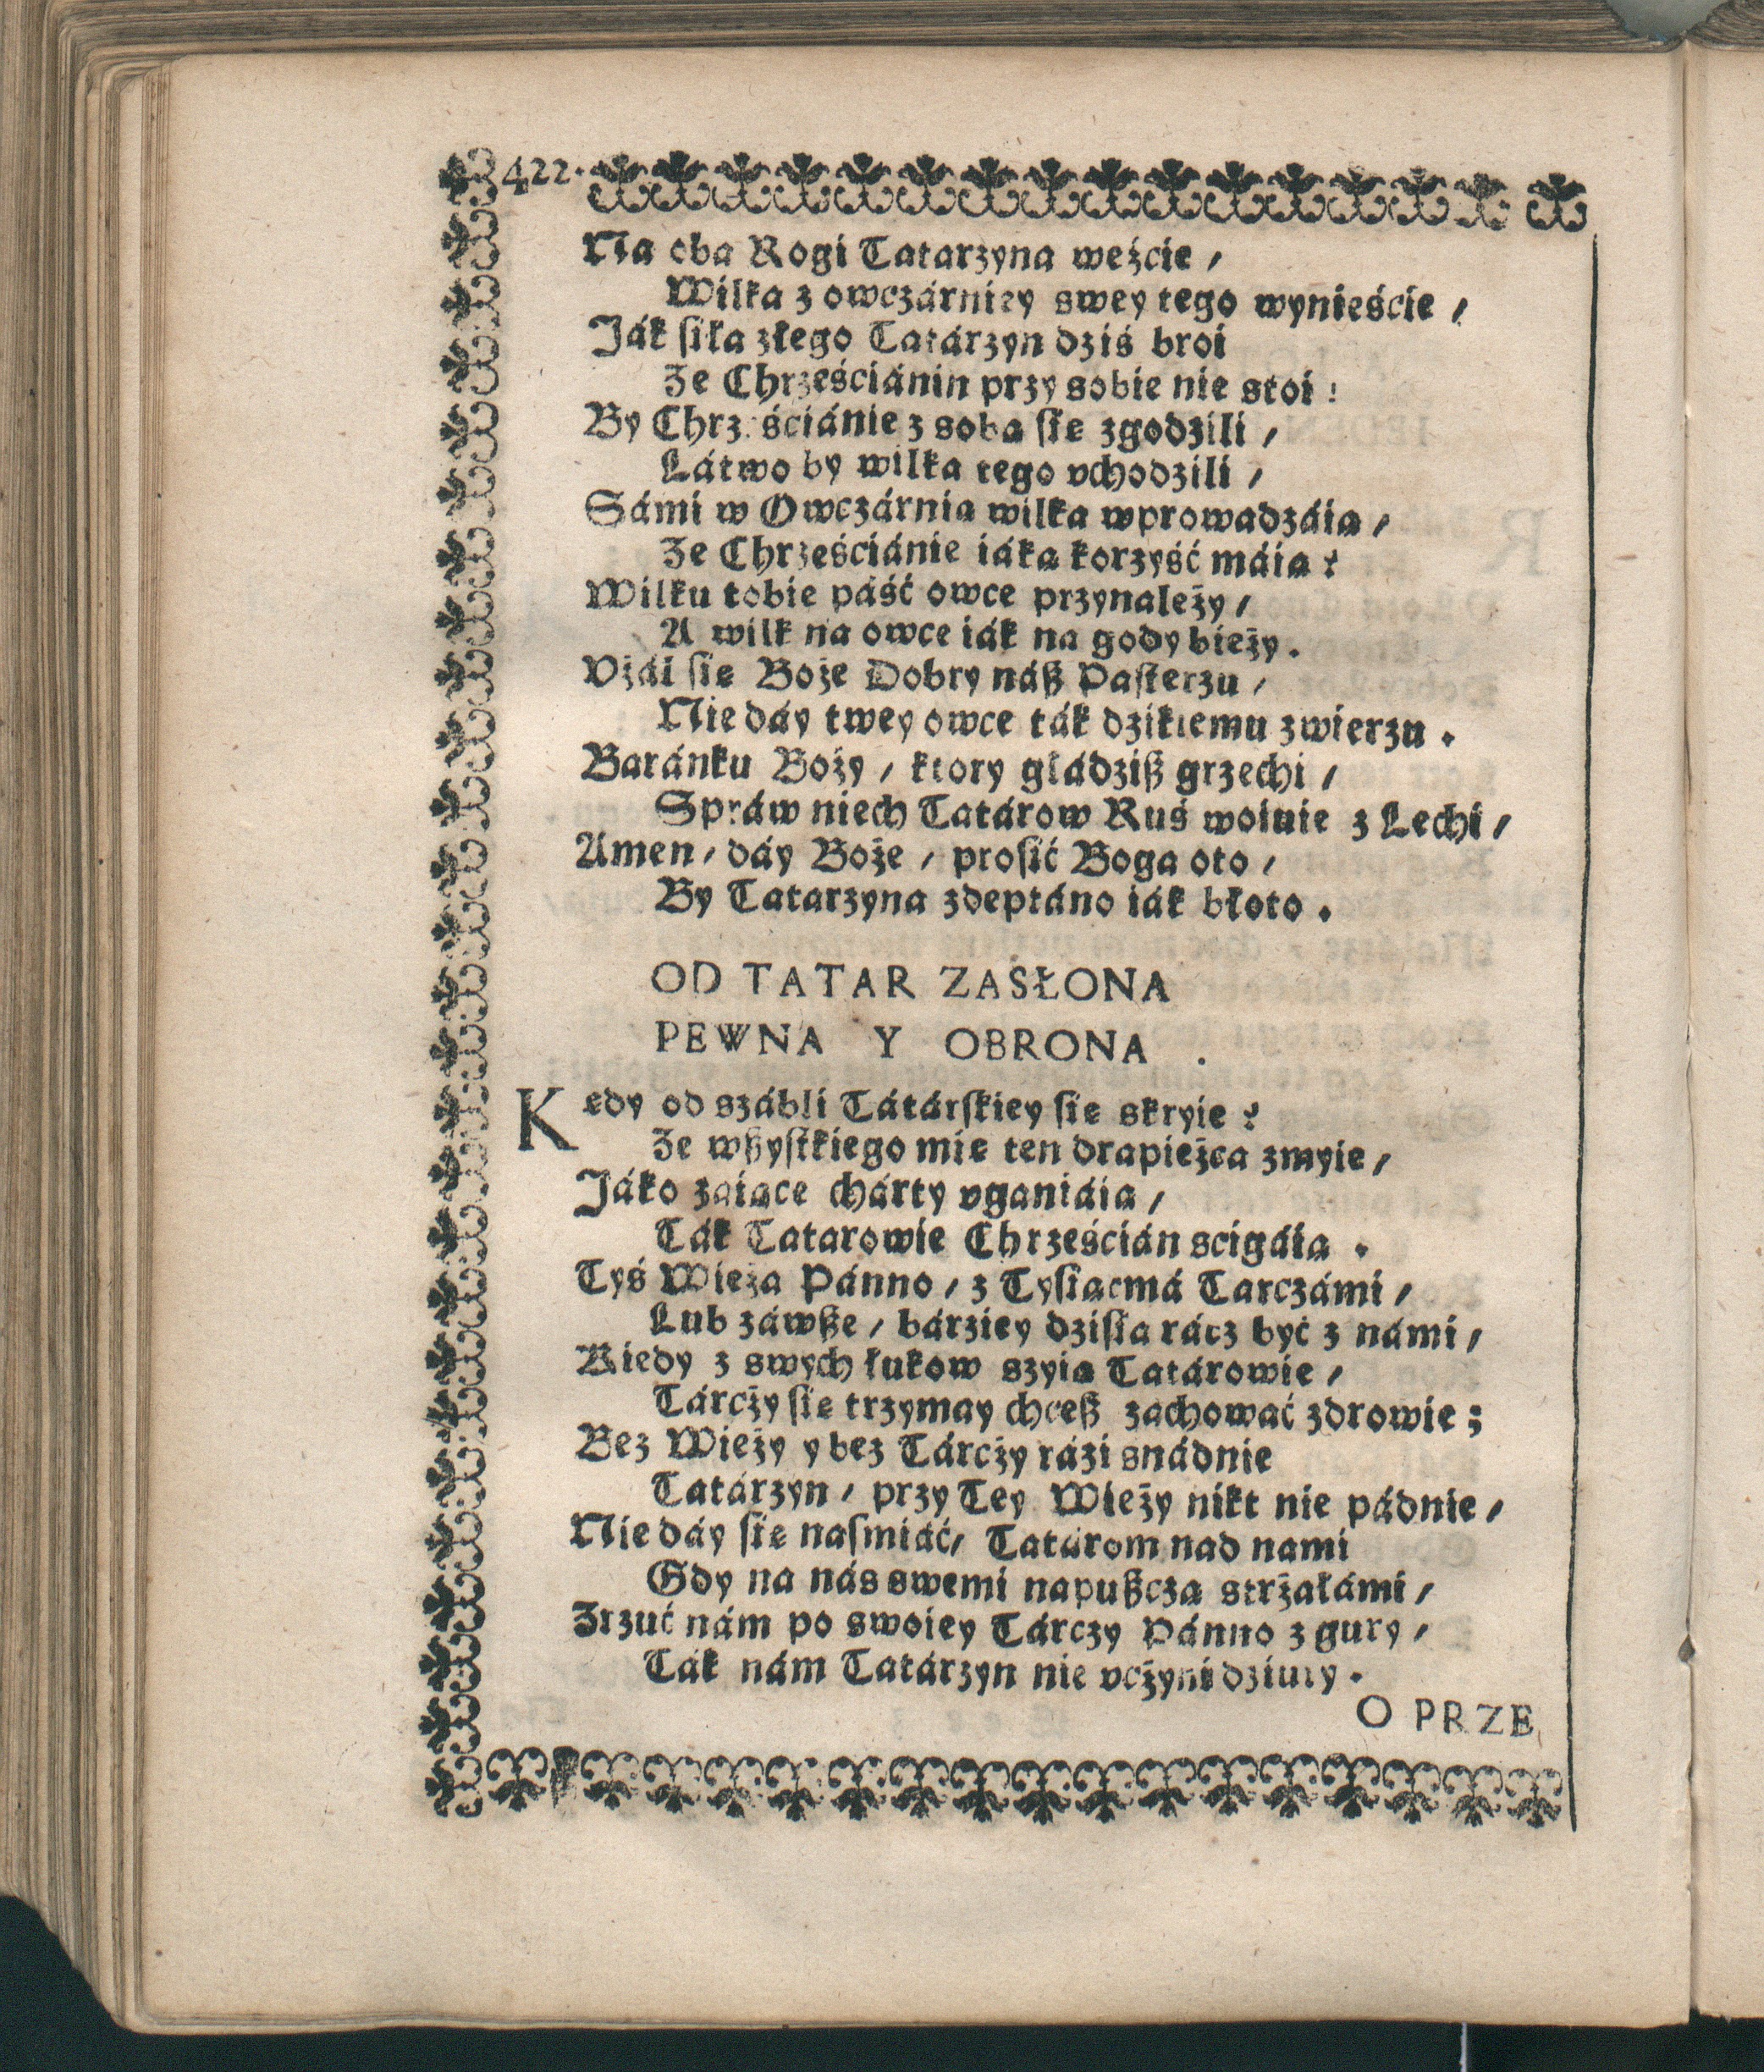 422.
Na oba Rogi Tatarzyna weźcie /
Wilka z owczárniey swey tego wynieście /
Ják siła złego Tatárzyn dziś broi
Ze Chrześciánin przy sobie nie stoi!
By Chrześciánie z sobą się zgodzili /
Látwo by wilka tego vchodzili /
Sámi w Owczárnią wilka wprowadzáią /
Ze Chrześciánie iáką korzyść máią?
Wilku tobie páść owce przynależy /
A wilk na owce iák na gody bieży.
Vżál się Boże Dobry náß Pasterzu /
Nie dáy twey owce ták dzikiemu zwierzu.
Baránku Boży / ktory głádziß grzechi /
Spráw niech Tatárow Ruś woiuie z Lechi /
Amen / dáy Boże / prosić Boga oto /
By Tatarzyna zdeptáno iák błoto.
OD TATAR ZASŁONA
PEWNA Y OBRONA.
Kędy od szábli Tátárskiey się skryię?
Ze wßystkiego mię ten drapieżca zmyie /
Jáko zaiące chárty vganiáią /
Ták Tatarowie Chrześcián scigáią.
Tyś Wieża Pánno / z Tysiącmá Tarczámi /
Lub záwße / bárziey dzisia rácz być z námi /
Kiedy z swych łukow szyią Tatárowie /
Tárcży się trzymay chceß zachować zdrowie;
Bez Wieży y bez Tárcży rázi snádnie
Tatárzyn / przy Tey Wieży nikt nie pádnie /
Nie dáy się nasmiáć / Tatárom nad nami
Gdy na nás swemi napußcza strżałámi /
Zrzuć nám po swoiey Tárczy Pánno z gury /
Ták nám Tatárzyn nie vcżyni dziury.
O PRZE